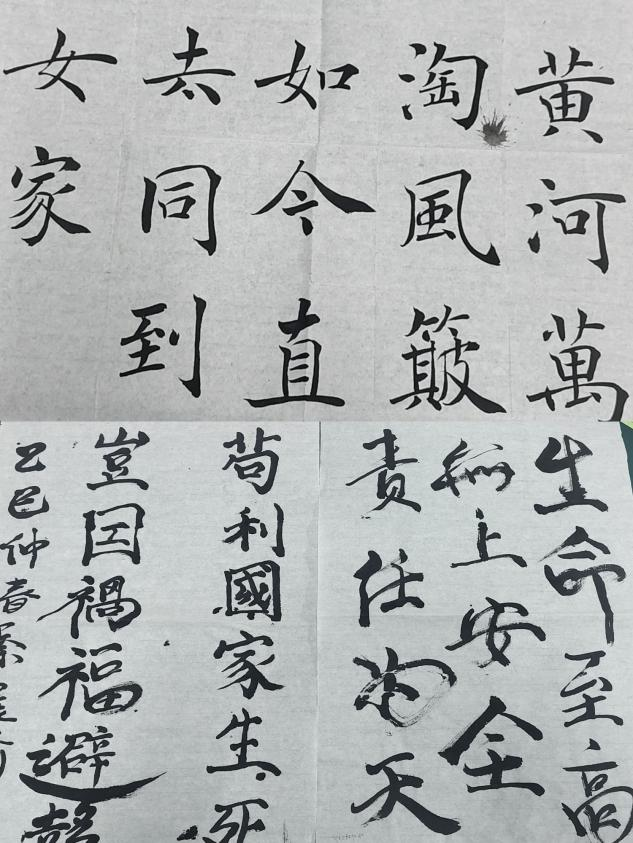 黄河萬
淘風簸
如今直
去同到
女家
生命至高
無上安全
责任为天
苟利國家生死
豈因禍福避
乙巳仲春